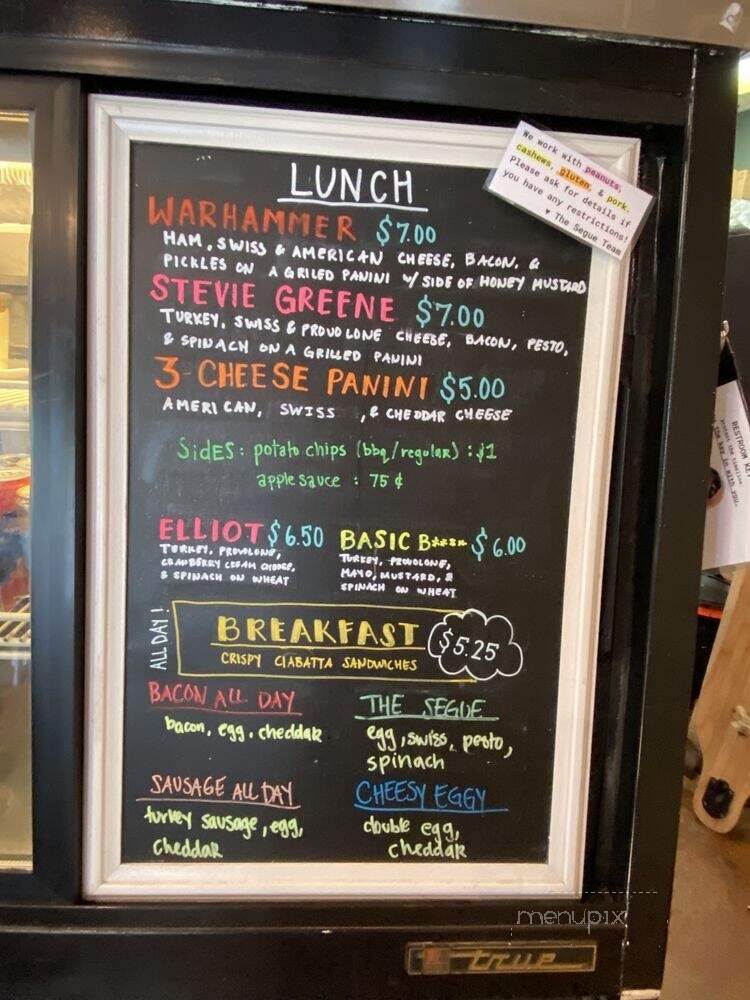 We work with peanuts,
cashews, gluten, & pork.
Please ask for details if
you have any restrictions!
♥ The Segue Team
LUNCH
WARHAMMER $7.00
HAM, SWISS & AMERICAN CHEESE, BACON, &
PICKLES ON A GRILED PANINI W/ SIDE OF HONEY MUSTARD
STEVIE GREENE $7.00
TURKEY, SWISS & PROVOLONE CHEESE, BACON, PESTO,
& SPINACH ON A GRILLED PANINI
3-CHEESE PANINI $5.00
AMERICAN, SWISS , & CHEDDAR CHEESE
Sides: potato chips (bbq/regular) : $1
apple sauce : 75 ¢
ELLIOT $6.50
TURKEY, PROVOLONE,
CRANBERRY CREAM CHEESE,
& SPINACH ON WHEAT
BASIC B**** $6.00
TURKEY, PROVOLONE,
MAYO, MUSTARD, &
SPINACH ON WHEAT
ALL DAY!
BREAKFAST $5.25
CRISPY CIABATTA SANDWICHES
BACON ALL DAY
bacon, egg, cheddar
THE SEGUE
egg, swiss, pesto,
spinach
SAUSAGE ALL DAY
turkey sausage, egg,
cheddar
CHEESY EGGY
double egg,
cheddar
RESTROOM KEY
the key is with you.
menupix
true